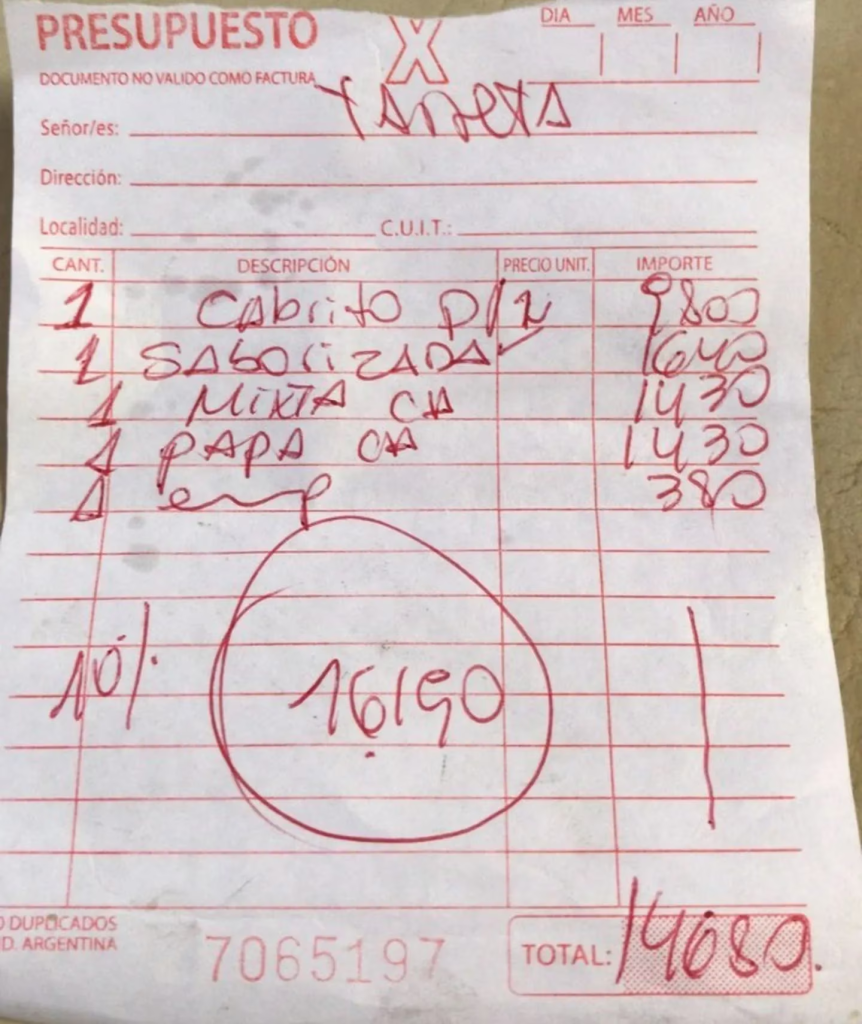 PRESUPUESTO X DIA MES AÑO
DOCUMENTO NO VALIDO COMO FACTURA
Señor/es: TARJETA
Dirección:
Localidad: C.U.I.T.:
CANT. DESCRIPCIÓN PRECIO UNIT. IMPORTE
1 CAbrito P/2 9800
1 SAbOrIZADA 1640
1 MIXTA CH 1430
1 PAPA CH 1430
1 emp 380
10%
16190
O DUPLICADOS
D. ARGENTINA
7065197
TOTAL: 14680.